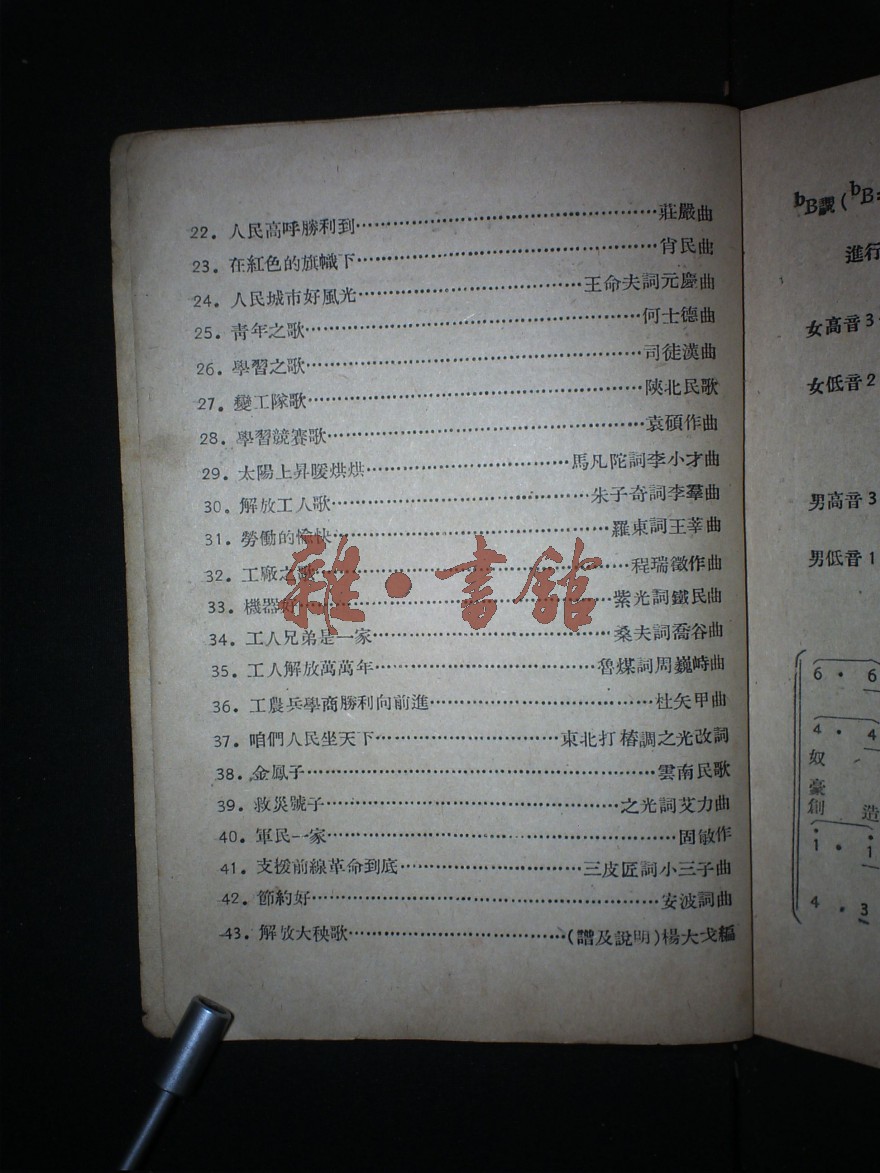 22. 人民高呼勝利到……莊嚴曲
23. 在紅色的旗幟下……肖民曲
24. 人民城市好風光……王命夫詞元慶曲
25. 青年之歌……何士德曲
26. 學習之歌……司徒漢曲
27. 變工隊歌……陝北民歌
28. 學習競賽歌……袁碩作曲
29. 太陽上昇暖烘烘……馬凡陀詞李小才曲
30. 解放工人歌……朱子奇詞李羣曲
31. 勞働的愉快……羅東詞王莘曲
32. 工廠之歌……程瑞徵作曲
33. 機器好……紫光詞鐵民曲
34. 工人兄弟是一家……桑夫詞喬谷曲
35. 工人解放萬萬年……魯煤詞周巍峙曲
36. 工農兵學商勝利向前進……杜矢甲曲
37. 咱們人民坐天下……東北打樁調之光改詞
38. 金鳳子……雲南民歌
39. 救災號子……之光詞艾力曲
40. 軍民一家……固敏作
41. 支援前線革命到底……三皮匠詞小三子曲
42. 節約好……安波詞曲
43. 解放大秧歌……(譜及說明)楊大戈編
雜·書館
bB調(bB=
進行
女高音 3
女低音 2
男高音 3
男低音 1
6 · 6
4 · 4
奴
豪
創 造
1 · 1
4 · 3